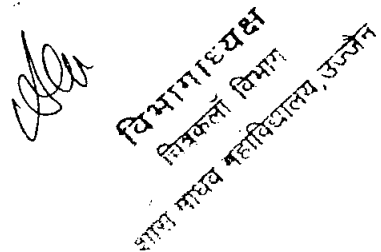 विभागाध्यक्ष
चित्रकला विभाग
शास माधव महाविद्यालय, उज्जैन